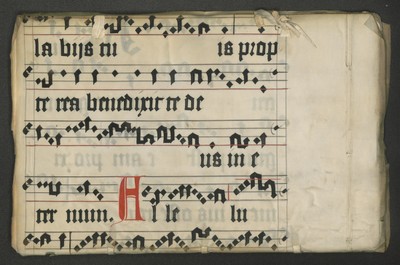 la bijs tu is prop
te rea benedixit te de
us in e
ter num. A l le lu